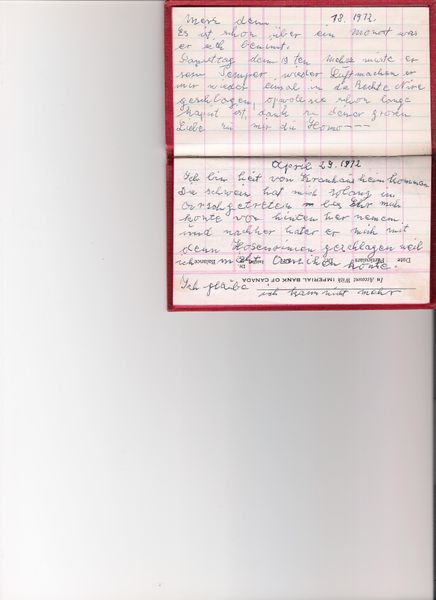 Merz dem 18. 1972.
Es ist schon über ein Monat was
er sich benimt.
Donnstag dem 19 ten mchte er
sein Temper wieder Luft machen er
mir wieder einmal in die Rechte Nire
geschlagen, opwole sie schon lange
kaput ist, dank zu deiner grosen
Liebe zu mir du Homo---
April 29. 1972
Ich bin heit von Kranhaus heim kommen
Du schwein hat mich solang in
orsch getreten bis Ehr mich
konte von hinten her nemen.
und nachher hat er mich mit
denn Hosenrimen geschlagen weil
ich
Date Particulars Dr. Cr. Balance
In Account With IMPERIAL BANK OF CANADA
Ich glaube ich kann nicht mehr